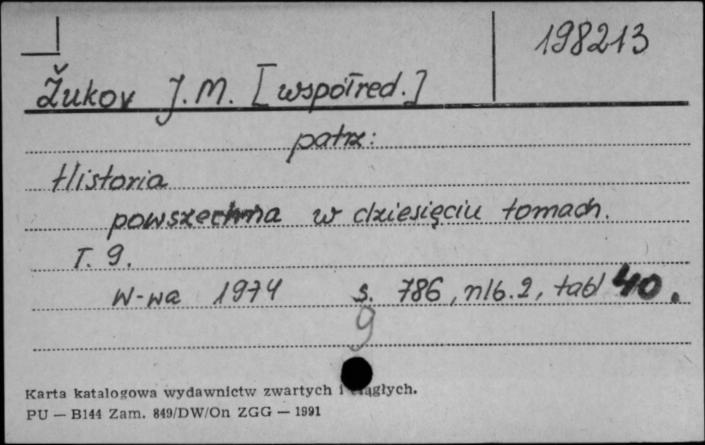 198213
Žukov J. M. [współred.]
patrz:
Historia
powszechna w dziesięciu tomach.
T. 9.
W-wa 1974 s. 786, nlb. 2, tabl 40.
9
Karta katalogowa wydawnictw zwartych i ciągłych.
PU — B144 Zam. 849/DW/On ZGG — 1991